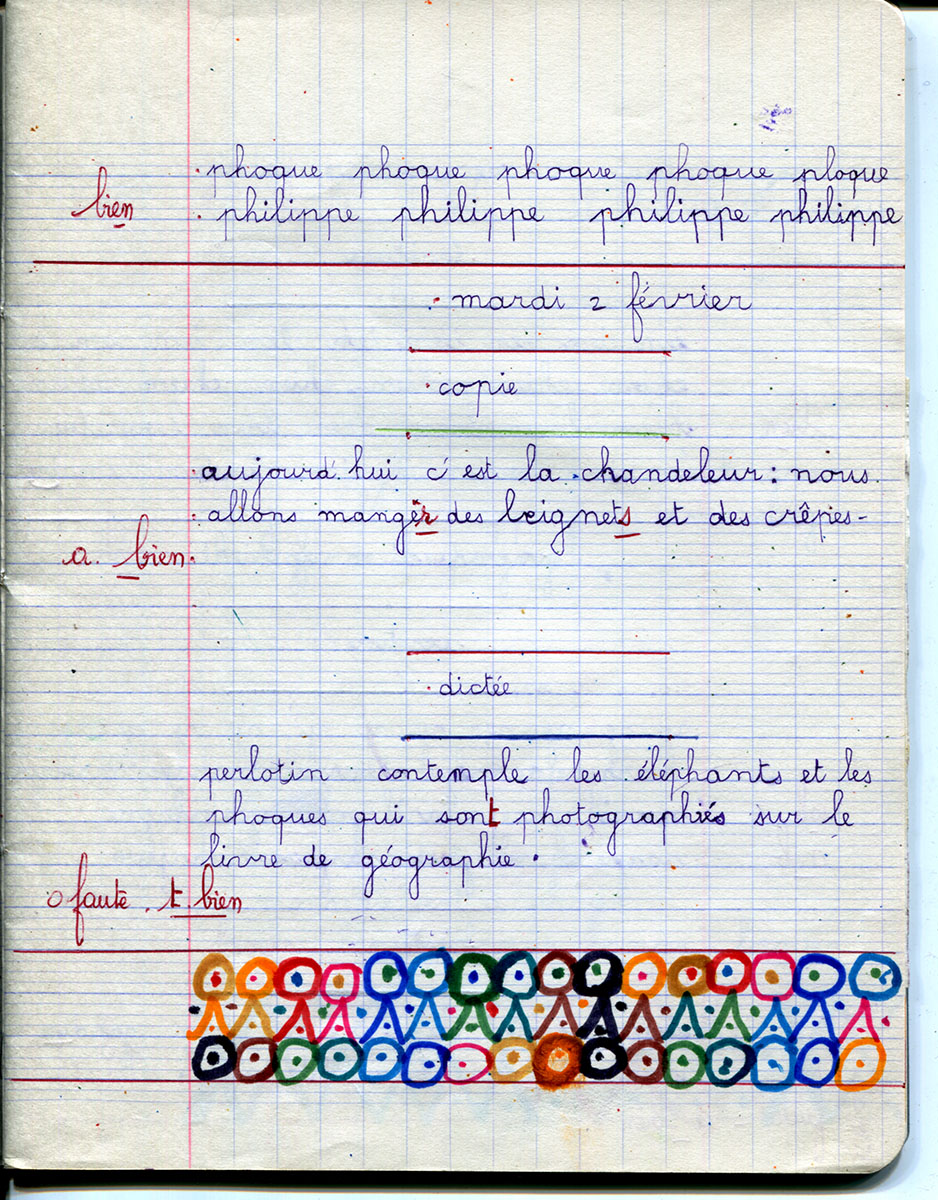 phoque phoque phoque phoque ploque
bien
philippe philippe philippe philippe
mardi 2 février
copie
aujourd'hui c'est la chandeleur : nous
allons manger des beignets et des crêpes-
a. bien.
dictée
perlotin contemple les éléphants et les
phoques qui sont photographiés sur le
livre de géographie.
0 faute. t. bien